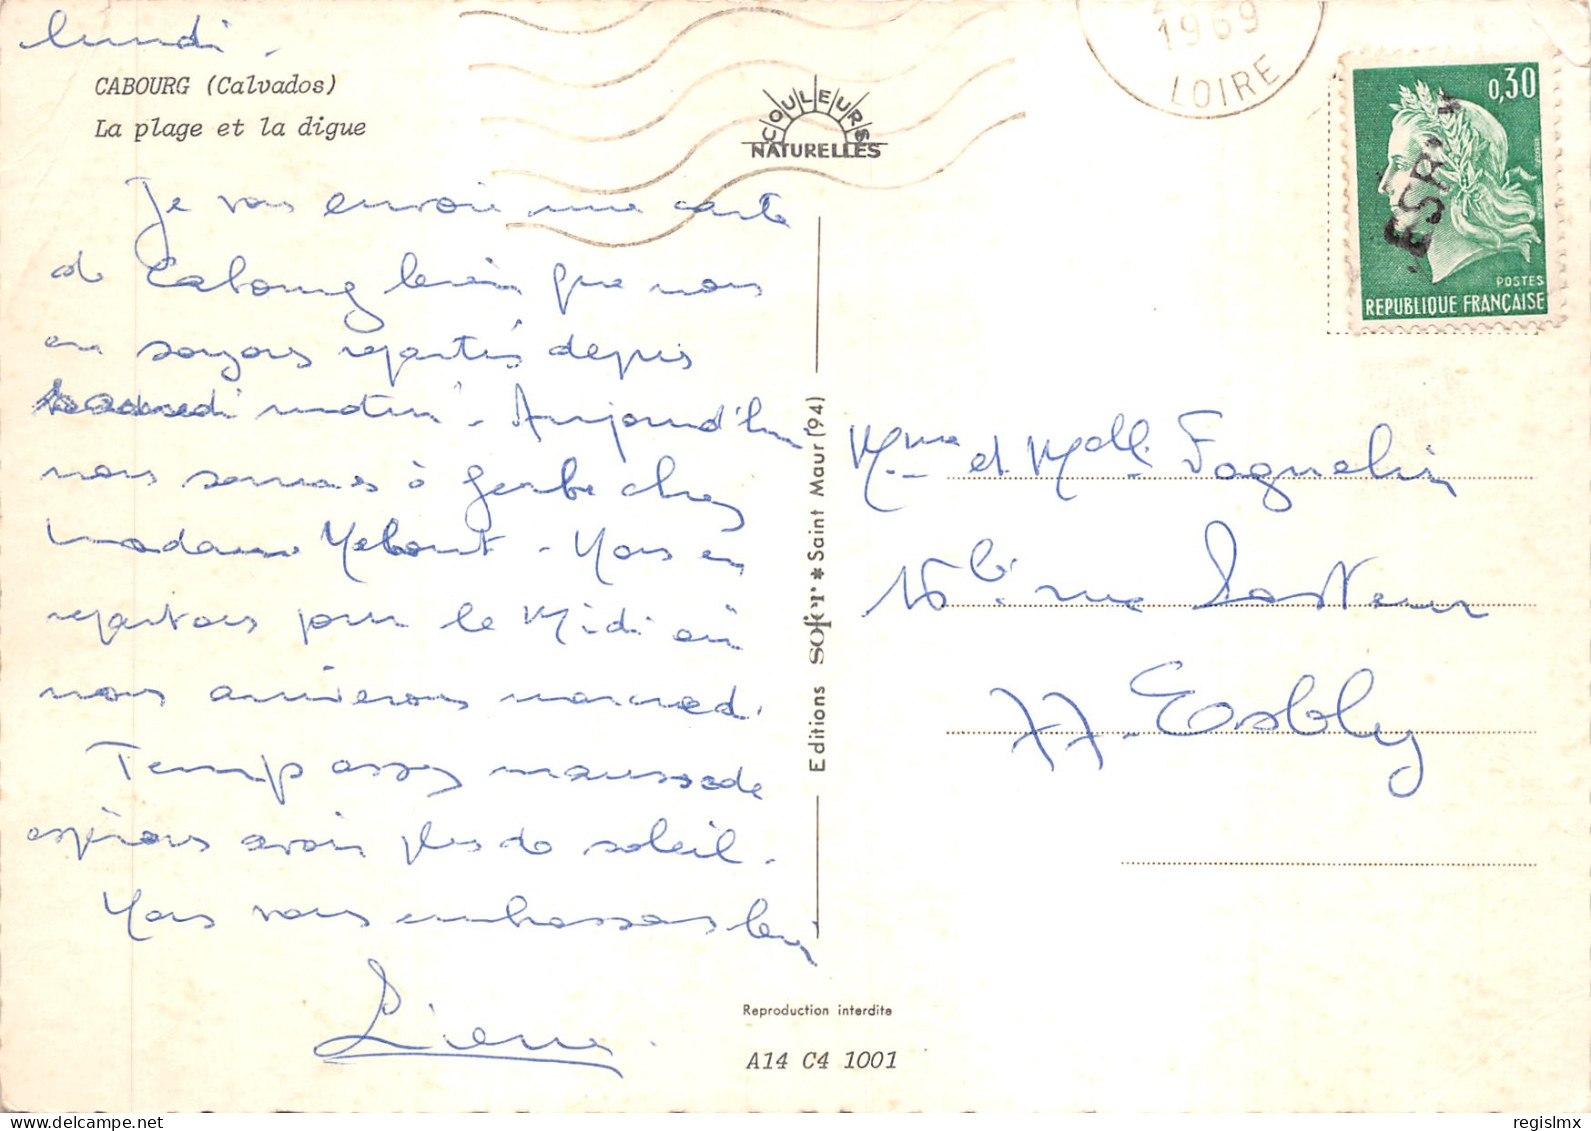 lundi.
CABOURG (Calvados)
La plage et la digue
COULEURS
NATURELLES
1969
LOIRE
0,30
POSTES
REPUBLIQUE FRANÇAISE
Je vous envoie une carte
de Cabourg bien que nous
en soyons repartis depuis
matin. Aujourd'hui
nous sommes à chez
madame. Nous en
repartons pour le Midi où
nous arriverons mercredi.
Temps assez maussade
espérons avoir plus de soleil.
Nous vous embrassons bien
Editions sofer * Saint Maur (94)
Mme et Melle Faguelin
16 bis rue Pasteur
77 - Esbly
Reproduction interdite
A14 C4 1001
regislmx